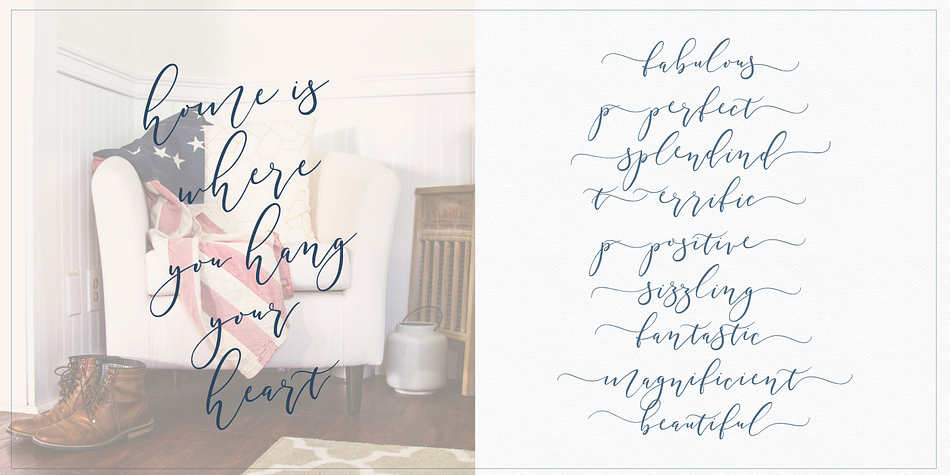 home is
where
you hang
your
heart
fabulous
p perfect
splendind
t errific
p positive
sizzling
fantastic
magnificient
beautiful